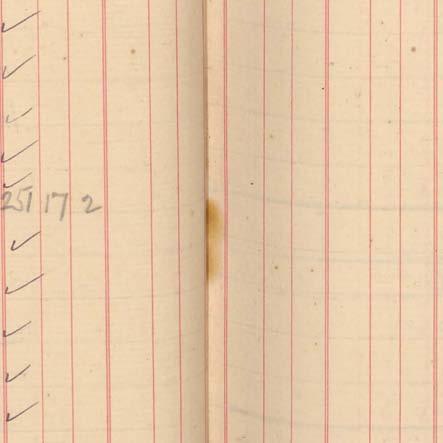 ✓
✓
✓
✓
✓
251 17 2
✓
✓
✓
✓
✓